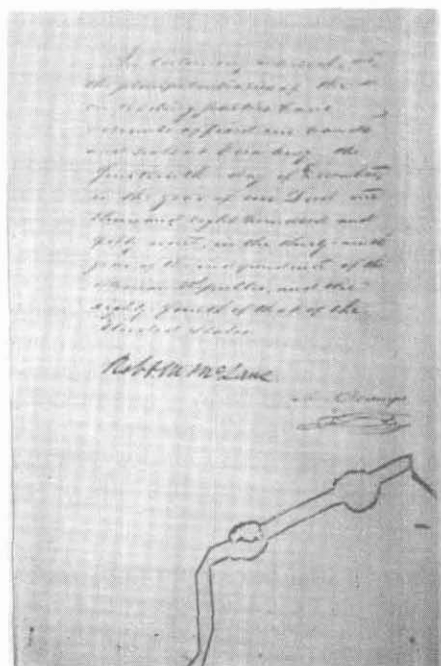 In testimony whereof, we
the plenipotentiaries of the
contracting parties have
hereunto affixed our hands
and seals at Vera Cruz the
fourteenth day of December,
in the year of our Lord one
thousand eight hundred and
fifty nine, in the thirty-ninth
year of the independence of the
Mexican Republic, and the
eighty fourth of that of the
United States.
Robt. M. McLane
M. Ocampo